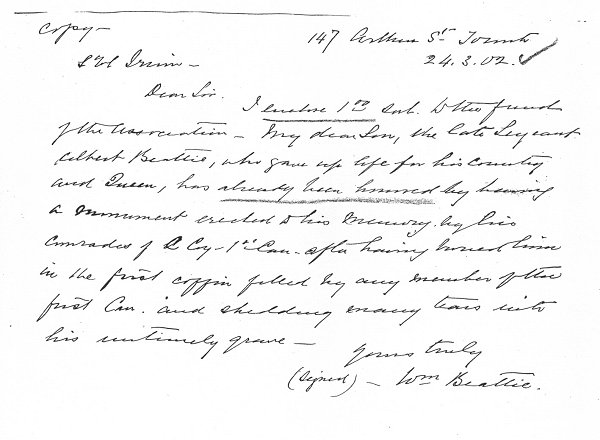 Copy—
147 Arthur St. Toronto
24.3.02.
Irvin—
Dear Sir.
I enclose 1⁰⁰ sub. to the funds
of the Association— My dear Son, the late Sergeant
Albert Beattie, who gave up life for his Country
and Queen, has already been honored by having
a monument erected to his Memory by his
Comrades of C Coy— 1st Can. after having buried him
in the first coffin filled by any member of the
first Can. and shedding many tears into
his untimely grave—
Yours truly
(signed)— Wm Beattie.